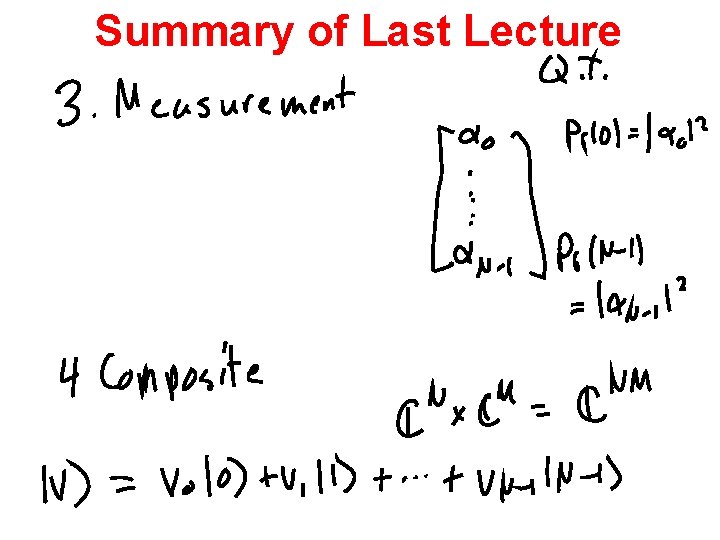 Summary of Last Lecture
Q.T.
3. Measurement
[α₀ ⋮ α_{N-1}]
Pr(0) = |α₀|²
Pr(N-1)
= |α_{N-1}|²
4 Composite
ℂᴺ × ℂᴹ = ℂᴺᴹ
|v⟩ = v₀|0⟩ + v₁|1⟩ + ⋯ + v_{N-1}|N-1⟩